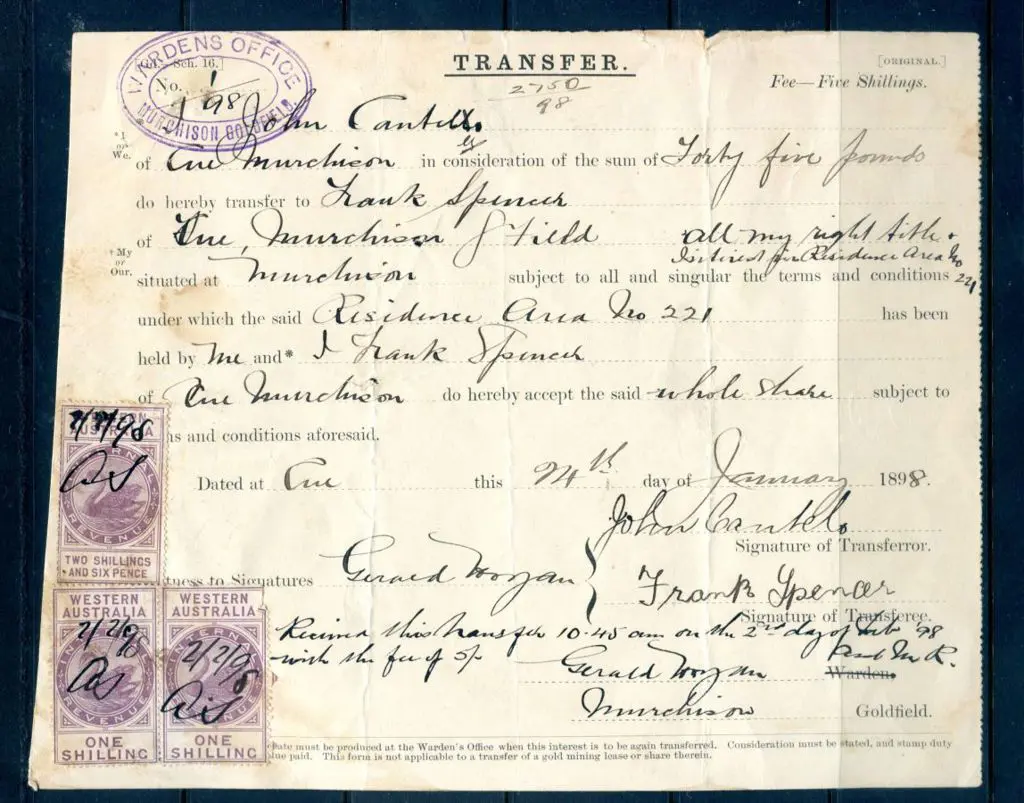 WARDENS OFFICE
MURCHISON GOLDFIELD
Sch. 16.]
No. 1/98
TRANSFER.
2750
98
[ORIGINAL.]
Fee—Five Shillings.
*I or We.
John Cantello
of Cue Murchison in consideration of the sum of Forty five pounds
do hereby transfer to Frank Spencer
of Cue, Murchison G Field all my right title &
Interest in Residence Area No 221
†My or Our.
situated at Murchison subject to all and singular the terms and conditions
under which the said Residence Area No 221 has been
held by Me and* I Frank Spencer
of Cue Murchison do hereby accept the said whole share subject to
ns and conditions aforesaid.
Dated at Cue this 24th day of January 1898.
John Cantelo
Signature of Transferror.
tness to Signatures Gerald Morgan
Frank Spencer
Signature of Transferee.
Received this transfer 10.45 am on the 2nd day of Feb '98
with the fee of 5/-
Gerald Morgan
M. R.
Warden.
Murchison Goldfield.
WESTERN AUSTRALIA
INTERNAL REVENUE
TWO SHILLINGS AND SIX PENCE
2/2/98
WESTERN AUSTRALIA
INTERNAL REVENUE
ONE SHILLING
2/2/98
WESTERN AUSTRALIA
INTERNAL REVENUE
ONE SHILLING
2/2/98
cate must be produced at the Warden's Office when this interest is to be again transferred. Consideration must be stated, and stamp duty
lue paid. This form is not applicable to a transfer of a gold mining lease or share therein.